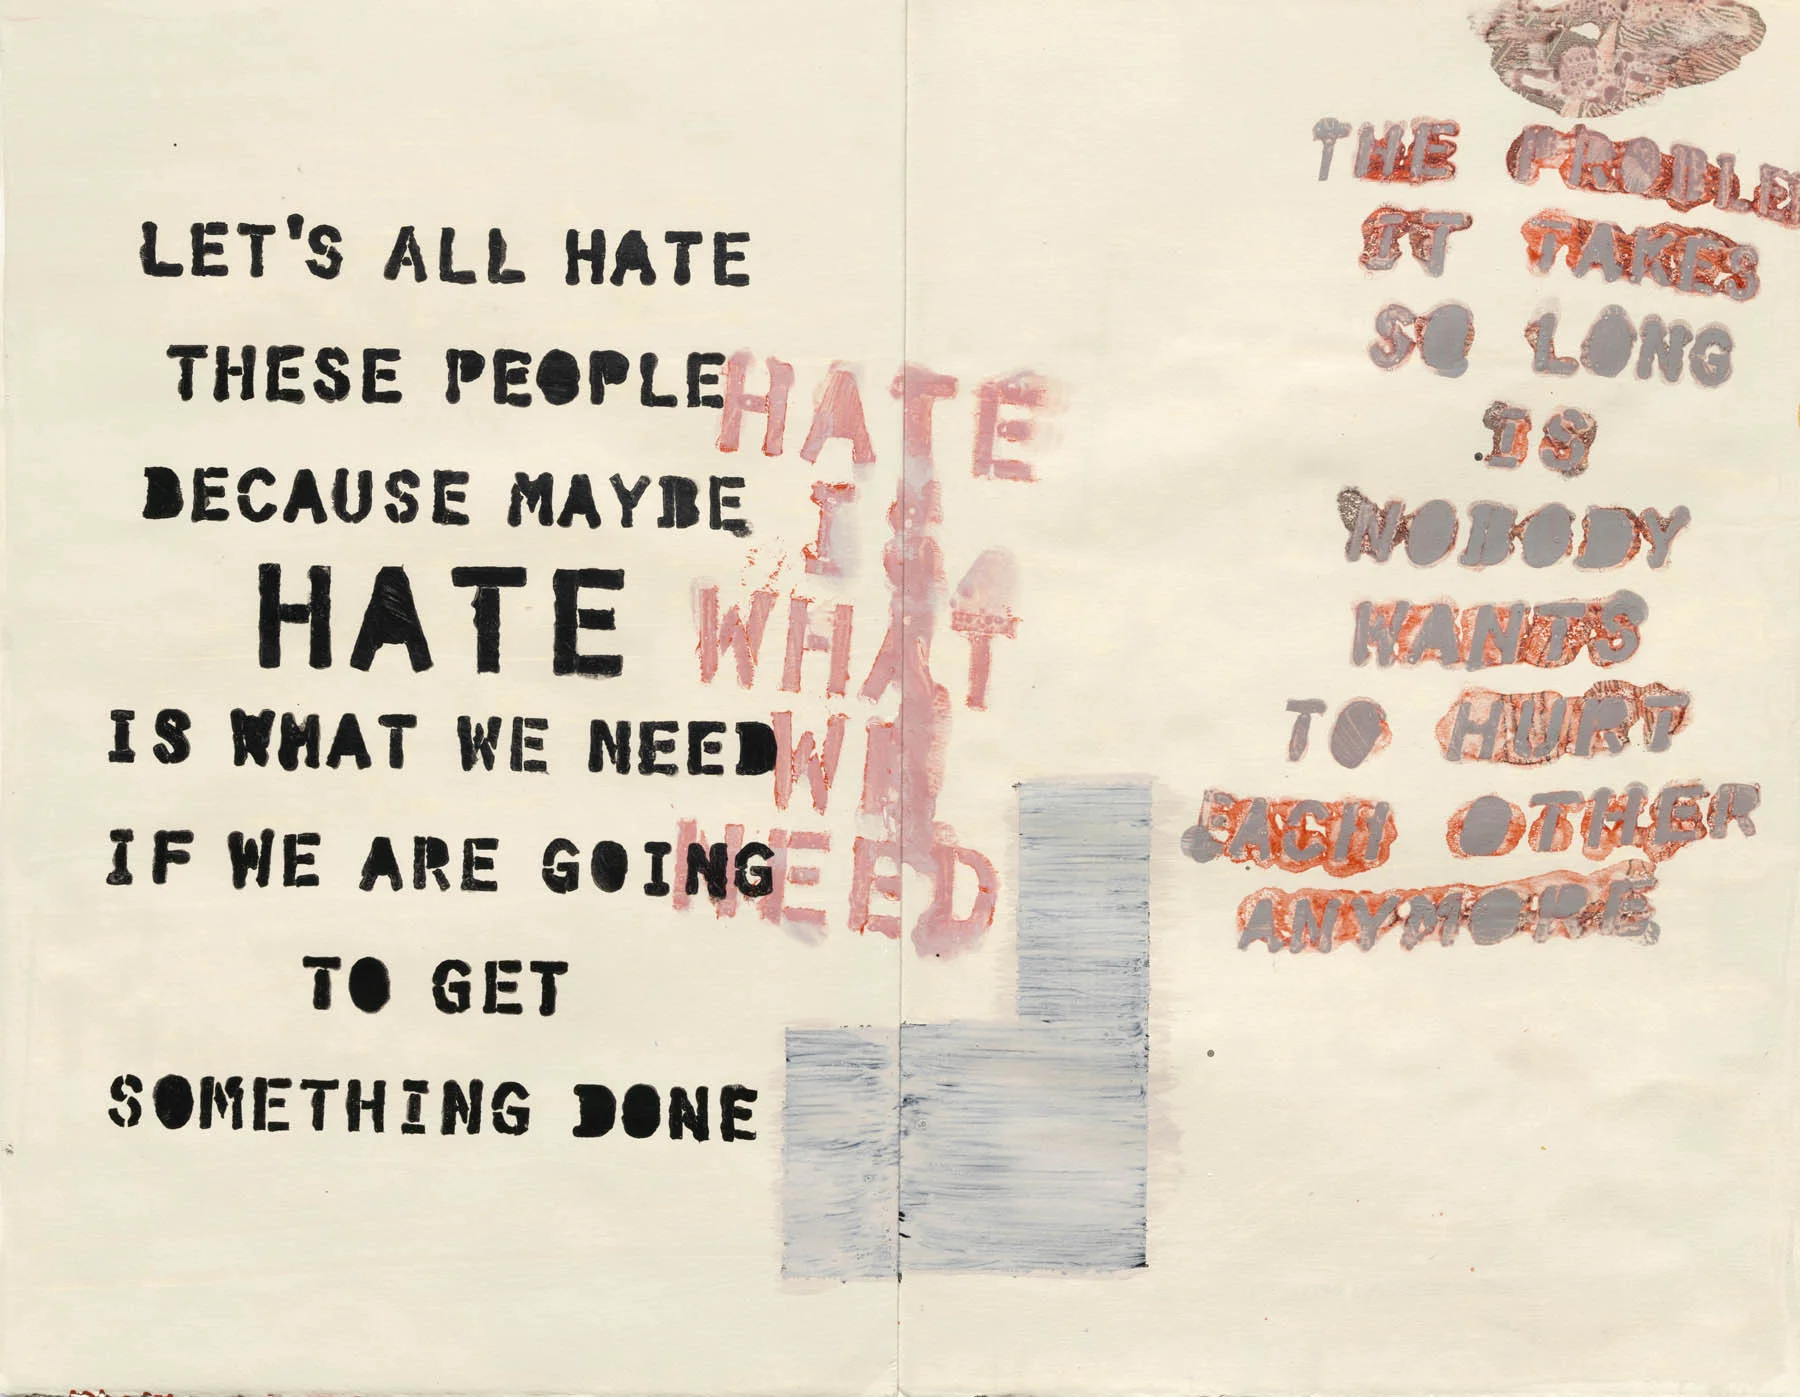 LET'S ALL HATE
THESE PEOPLE
BECAUSE MAYBE
HATE
IS WHAT WE NEED
IF WE ARE GOING
TO GET
SOMETHING DONE
HATE
WHAT
WE
NEED
THE PROBLEM
IT TAKES
SO LONG
IS
NOBODY
WANTS
TO HURT
EACH OTHER
ANYMORE